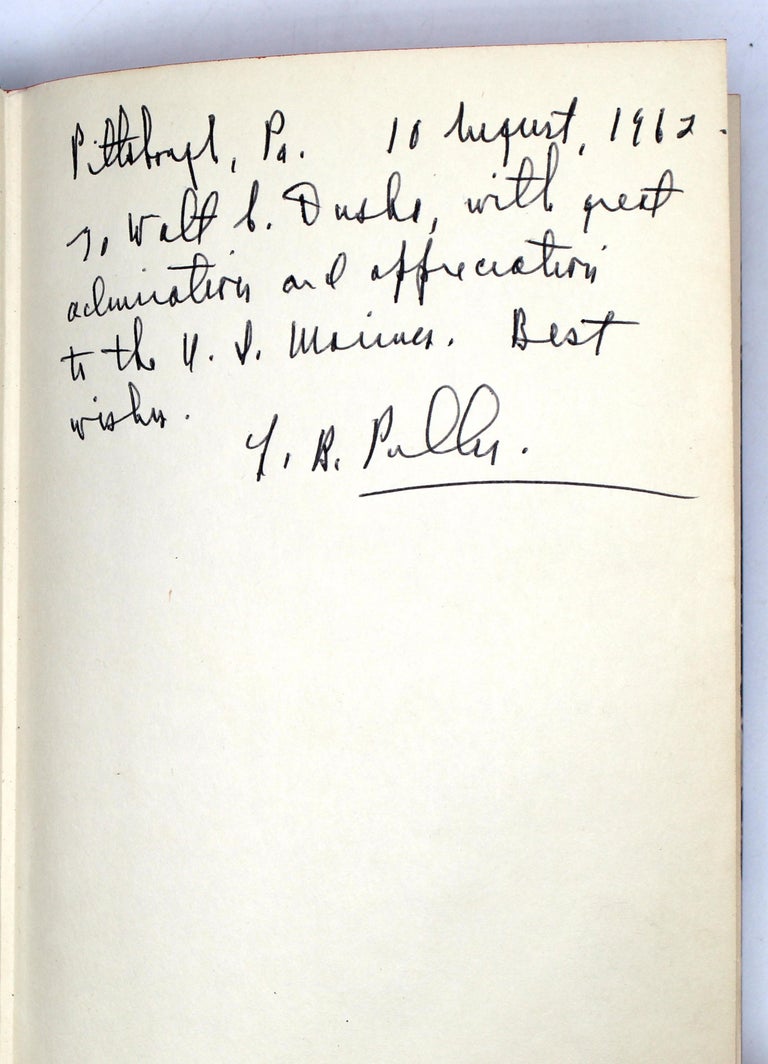 Pittsburgh, Pa. 10 August, 1962.
To Walt C. , with great
admiration and appreciation
to the U. S. Marines. Best
wishes.
L. B. Puller.